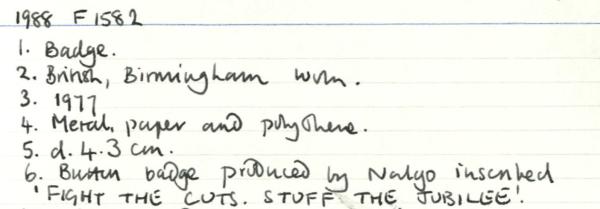 1988 F 1582
1. Badge.
2. British, Birmingham worn.
3. 1977
4. Metal, paper and polythene.
5. d. 4.3 cm.
6. Button badge produced by Nalgo inscribed
'FIGHT THE CUTS. STUFF THE JUBILEE'.